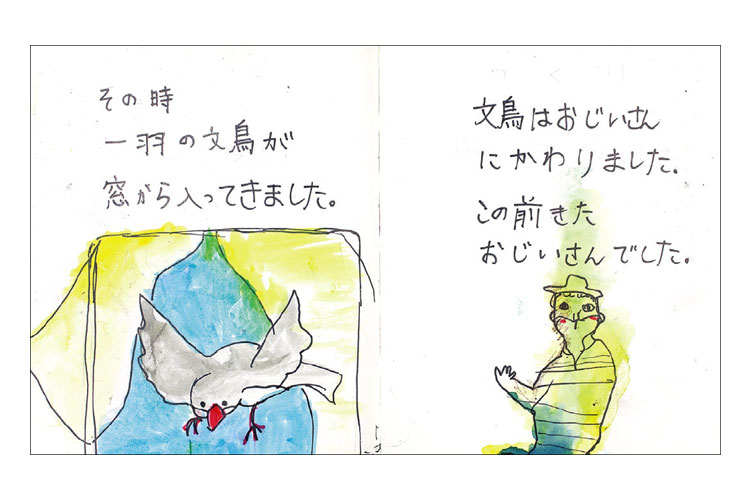 その時
一羽の文鳥が
窓から入ってきました。
文鳥はおじいさん
にかわりました。
この前きた
おじいさんでした。